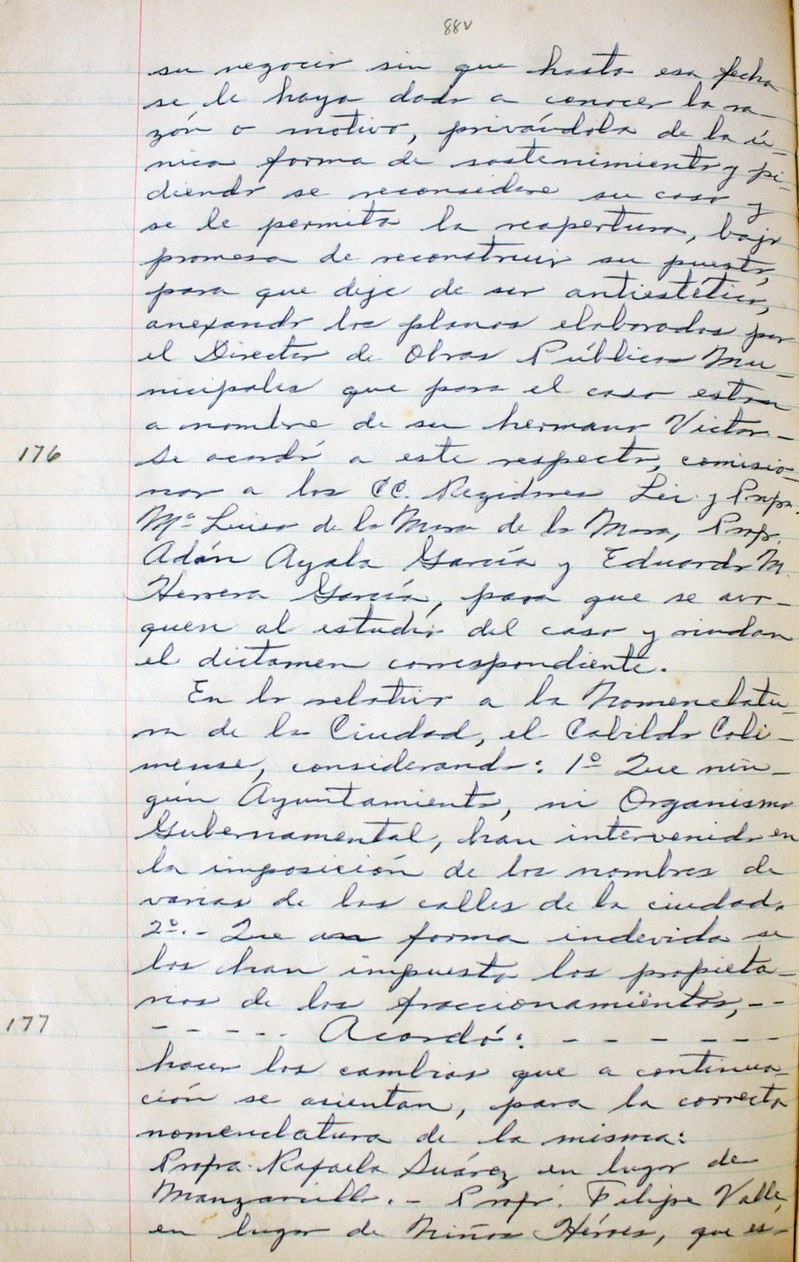 88v
su negocio sin que hasta esa fecha
se le haya dado a conocer la ra-
zón o motivo, privándola de la ú-
nica forma de sostenimiento y pi-
diendo se reconsidere su caso y
se le permita la reapertura, bajo
promesa de reconstruir su puesto,
para que deje de ser antiestético,
anexando los planos elaborados por
el Director de Obras Públicas Mu-
nicipales que para el caso estan
a nombre de su hermano Victor.-
176 Se acordó a este respecto, comisio-
nar a los CC. Regidores Lic. y Profa.
Ma. Luisa de la Mora de la Mora, Profr.
Adán Ayala García y Eduardo M.
Herrera García, para que se avo-
quen al estudio del caso y rindan
el dictamen correspondiente.
En lo relativo a la Nomenclatu-
ra de la Ciudad, el Cabildo Coli-
mense, considerando: 1º Que nin-
gún Ayuntamiento, ni Organismo
Gubernamental, han intervenido en
la imposición de los nombres de
varias de las calles de la ciudad.
2º.- Que en forma indevida se
los han impuesto los propieta-
rios de los fraccionamientos, --
177 - - - - - Acordó: - - - - - -
hacer los cambios que a continua-
ción se asientan, para la correcta
nomenclatura de la misma:
Profra. Rafaela Suárez en lugar de
Manzanillo. - Profr. Felipe Valle,
en lugar de Niños Héroes, que es-